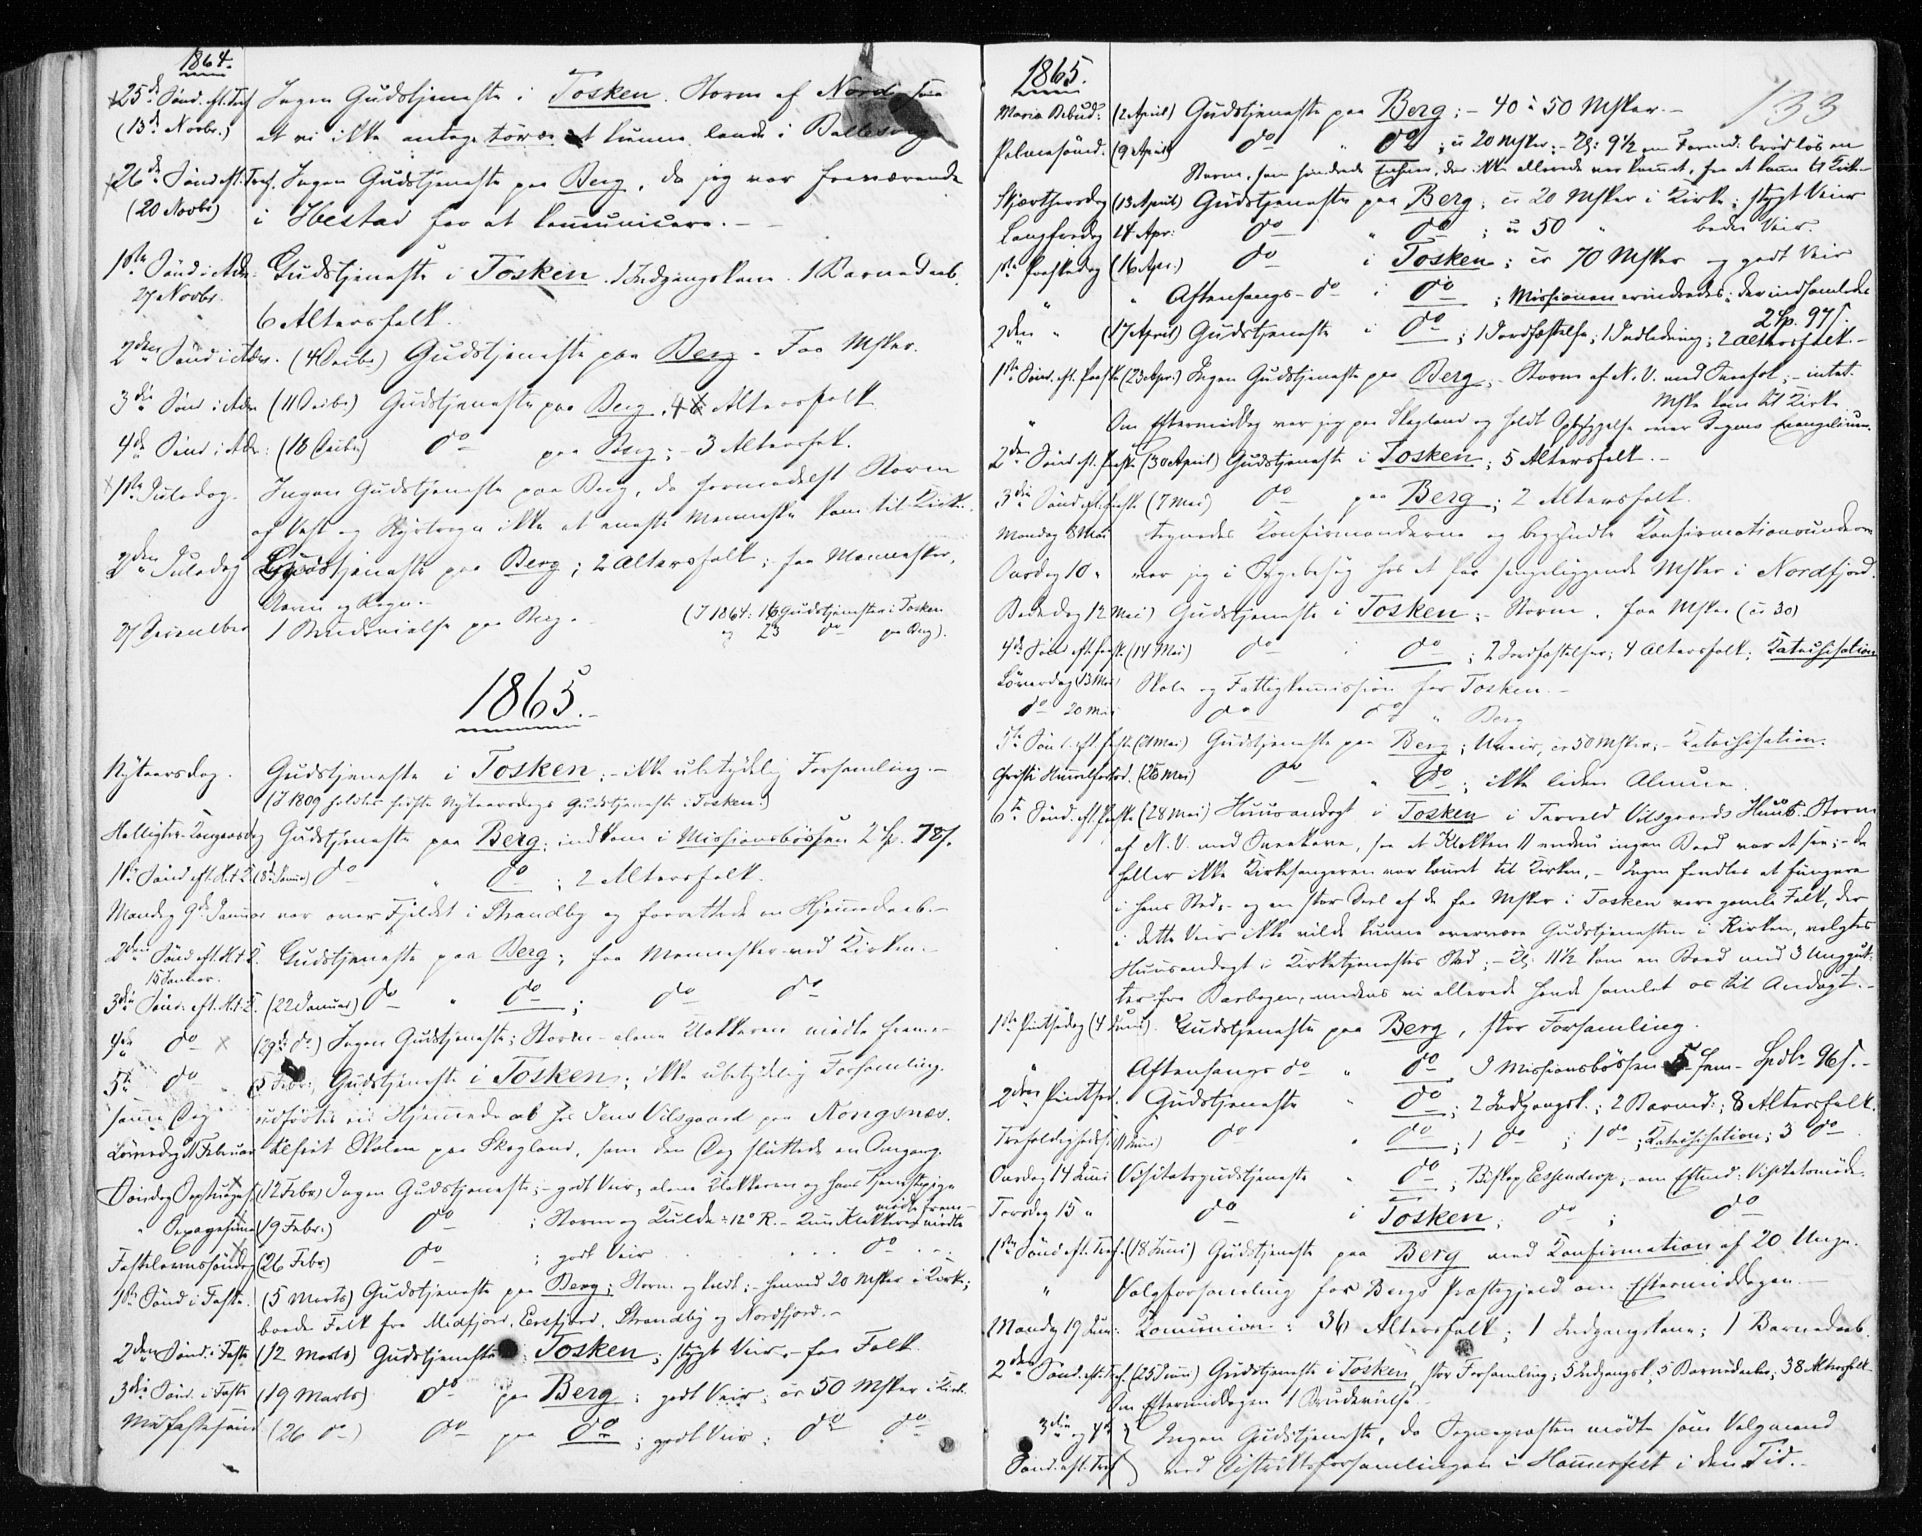 1864.
25de Sønd. eft. Tref. Ingen Gudstjeneste i Tosken. Storm af Nord saa
(13de Novbr.) at vi ikke antoge turde at kunne lande i Ballesvigen
26de Sønd. eft. Tref. Ingen Gudstjeneste paa Berg, da jeg var fraværende
(20 Novbr) i Ibestad for at kommunicere. -
1ste Sønd i Adv. Gudstjeneste i Tosken. 1 Indgangskone. 1 Barnedaab.
27 Novbr.
6 Altersfolk.
2den Sønd i Adv. (4 Decbr.) Gudstjeneste paa Berg - Faa Msker.
3die Sønd i Adv (11 Decbr) Gudstjeneste paa Berg, 4 Altersfolk
4de Sønd i Adv: (18 Decbr) do paa Berg; - 3 Altersfolk.
1ste Juledag. Ingen Gudstjeneste paa Berg, da formedelst Storm
af Vest og ikke et eneste Menneske kom til Kirke.
2den Juledag Gudstjeneste paa Berg; 2 Altersfolk; faa Mennesker,
Storm og Regn. -
27 December 1 Brudevielse paa Berg. (I 1864: 16 Gudstjenester i Tosken
og 23 do paa Berg).
1865.
Nytaarsdag. Gudstjeneste i Tosken; - ikke ubetydelig Forsamling. -
(I 1809 holdtes første Nytaarsdags Gudstjeneste i Tosken.)
Hellig tre Kongersdag Gudstjeneste paa Berg; indkom i Missionsbøssen 2 Sp. 78 s.
1ste Sønd. eft. H. t. K. (8de Januar) do " do; 2 Altersfolk.
Mandag 9de Januar var over Fjeldet i Strandby og forrettede en Hjemmedaab. -
2den Sønd eft. H. t. K. Gudstjeneste paa Berg; faa Mennesker ved Kirken -
15 Januar.
3die Sønd. eft. H. t. K. (22 Januar) do " do; do do
4de " do (29de do) Ingen Gudstjeneste; Storm - alene Klokkeren mødte frem. -
5te " do 5 Febr: Gudstjeneste i Tosken; ikke ubetydelig Forsamling.
samme Dag udførtes en Hjemmedaab hos Jens Vilsgaard paa Kongsnæs.
Løverdag 11 Februar tilseet Skolen paa Skogland, som den Dag sluttede en Omgang.
Søndag Septuages. (12 Febr.) Ingen Gudstjeneste; - godt Veir; alene Klokkeren og hans Tjenestepige
mødte frem -
" Sexagesima (19 Febr.) do; Storm og Kulde ÷ 12° R. - Kun Klokkeren mødte
Fastelavnssøndag (26 Febr) do; godt Veir . . . . . do . . .
1ste Sønd i Faste. (5 Marts) Gudstjeneste paa Berg; Storm og koldt; - henved 20 Msker i Kirke;
baade Folk fra Midfjord, Ersfjord, Strandby og Nordfjord. -
2den Sønd. i Faste (12 Marts) Gudstjeneste i Tosken; stygt Veir, - faa Folk.
3die Sønd. i Faste (19 Marts) do paa Berg; godt Veir; ca 50 Msker i Kirk.
Midfastesønd (26 do) do paa do; godt Veir; do do
1865.
133
Maria Bebud: (2 April) Gudstjeneste paa Berg; - 40 à 50 Msker. -
Palmesønd. (9 April) do " do; ca 20 Msker; - Kl: 9½ om Formd. brød løs en
Storm, som hindrede Enhver, der ikke allerede var kommet, fra at komme til Kirke -
Skjærthorsdag (13 April) Gudstjeneste paa Berg; ca 20 Msker i Kirke; stygt Veir
Langfredag 14 Apr: do " do; ca 50 " bedre Veir.
1ste Paaskedag (16 Apr.) do i Tosken; ca 70 Msker og godt Veir
" " Aftensangs - do i do; Missionen erindredes; der indsamledes
2 Sp. 97 s.
2den " (17 April) Gudstjeneste i do; 1 Jordfæstelse; 1 Indledning; 2 Altersfolk. -
1ste Sønd. eft. Paaske (23 Apr.) Ingen Gudstjeneste paa Berg; - Storm af N. V. med Sneefok; - intet
Mske kom til Kirke
" Om Eftermiddag var jeg paa Skogland og holdt Opbyggelse over Dagens Evangelium.
2den Sønd eft. Paaske (30 April) Gudstjeneste i Tosken; 5 Altersfolk. -
3die Sønd. eft. Paaske (7 Mai) do paa Berg; 2 Altersfolk.
Mandag 8 Mai tegnedes Konfirmanderne og begyndte Konfirmationsunderv.
Onsdag 10 " var jeg i Sygebesøg hos et Par sengeliggende Msker i Nordfjord.
Bededag 12 Mai) Gudstjeneste i Tosken; - Storm. faa Msker (ca 30)
4de Sønd eft. Paaske (14 Mai) do i do; 2 Jordfæstelser; 4 Altersfolk; Katechisation
Løverdag 13 Mai Skole og Fattigkommission for Tosken. -
do 20 Mai do do " Berg
5te Sønd. eft. Paaske (21 Mai) Gudstjeneste paa Berg; Uveir, ca 50 Msker; - Katechisation.
Christi Himmelfartsd. (25 Mai) do " do; ikke liden Almue
6te Sønd. eft. Paaske (28 Mai) Huusandagt i Tosken i Tarald Vilsgaards Huus. Storm
af N. V. med Sneekave, saa at Klokken 11 endnu ingen Baad var at see; - da
heller ikke Kirkesangeren var kommet til Kirken, - Ingen fandtes at fungere
i hans Sted, - og en stor Deel af de faa Msker i Tosken vare gamle Folk, der
i dette Veir ikke vilde kunne overvære Gudstjenesten i Kirken, valgtes
Huusandagt i Kirketjenestes Sted; - Kl: 11½ kom en Baad med 3 Unggut-
ter fra Barbogen, medens vi allerede havde samlet os til Andagt. -
1ste Pintsedag (4 Juni). Gudstjeneste paa Berg, stor Forsamling.
" Aftensangs do " do I Missionsbøssen 5 fem - Spdlr 96 s. -
2den Pintsed. Gudstjeneste " do; 2 Indgangsk.; 2 Barned.; 8 Altersfolk.
Trefoldigheds (11 Juni) do " do; 1 do; 1 do; Katechisation; 3 do
Onsdag 14 Juni Visitatsgudstjeneste " do; Biskop Essendrop; - om Eftmd: Visitatsmøde
Torsdag 15 " do i Tosken; do; do
1ste Sønd eft. Tref. (18 Juni) Gudstjeneste paa Berg med Konfirmation af 20 Unge.
" Valgforsamling for Bergs Præstegjeld om Eftermiddagen. -
Mandag 19 Juni: Kommunion: 36 Altersfolk; 1 Indgangskone; 1 Barnedaab.
2den Sønd. eft. Tref. (25 Juni) Gudstjeneste i Tosken, stor Forsamling; 5 Indgangsk, 5 Barnedaab; 38 Altersfolk
Om Eftermiddagen 1 Brudevielse. -
3die og 4de Ingen Gudstjeneste, da Sognepræsten mødte som Valgmand
Sønd. eft. Tref ved Distriktsforsamlingen i Hammerfest i den Tid. -